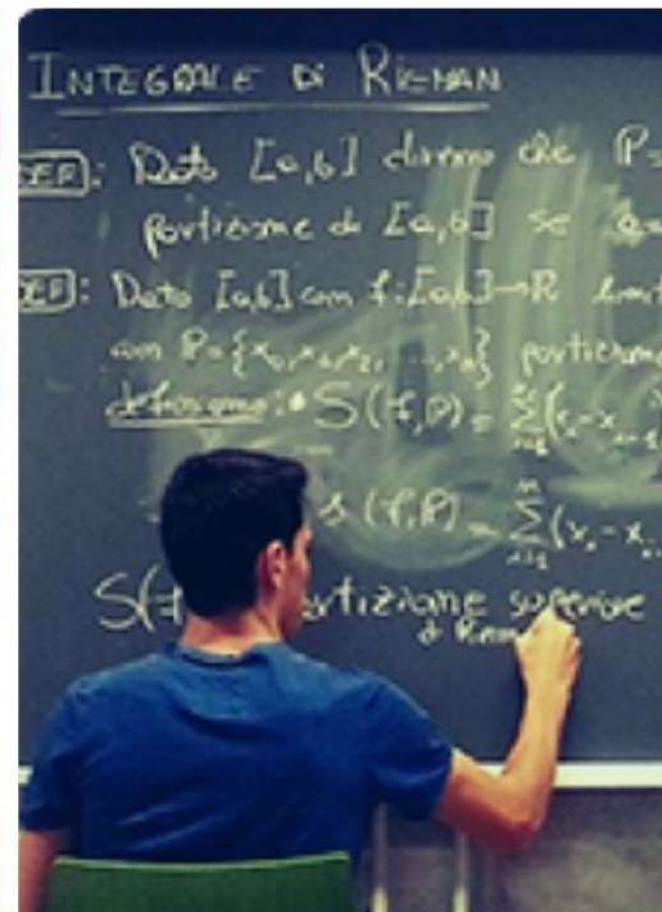 INTEGRALE DI RIEMAN
DEF: Dato [a,b] diremo che P=
partizione di [a,b] se
DEF: Dato [a,b] con f:[a,b]→R limit
con P={x₀,x₁,x₂, ...,xₙ} partizione
definiamo:• S(f,P) = Σ(xᵢ-xᵢ₋₁
s(f,P) = Σ(xᵢ-xᵢ₋
S(f rtizione superiore
di Riem